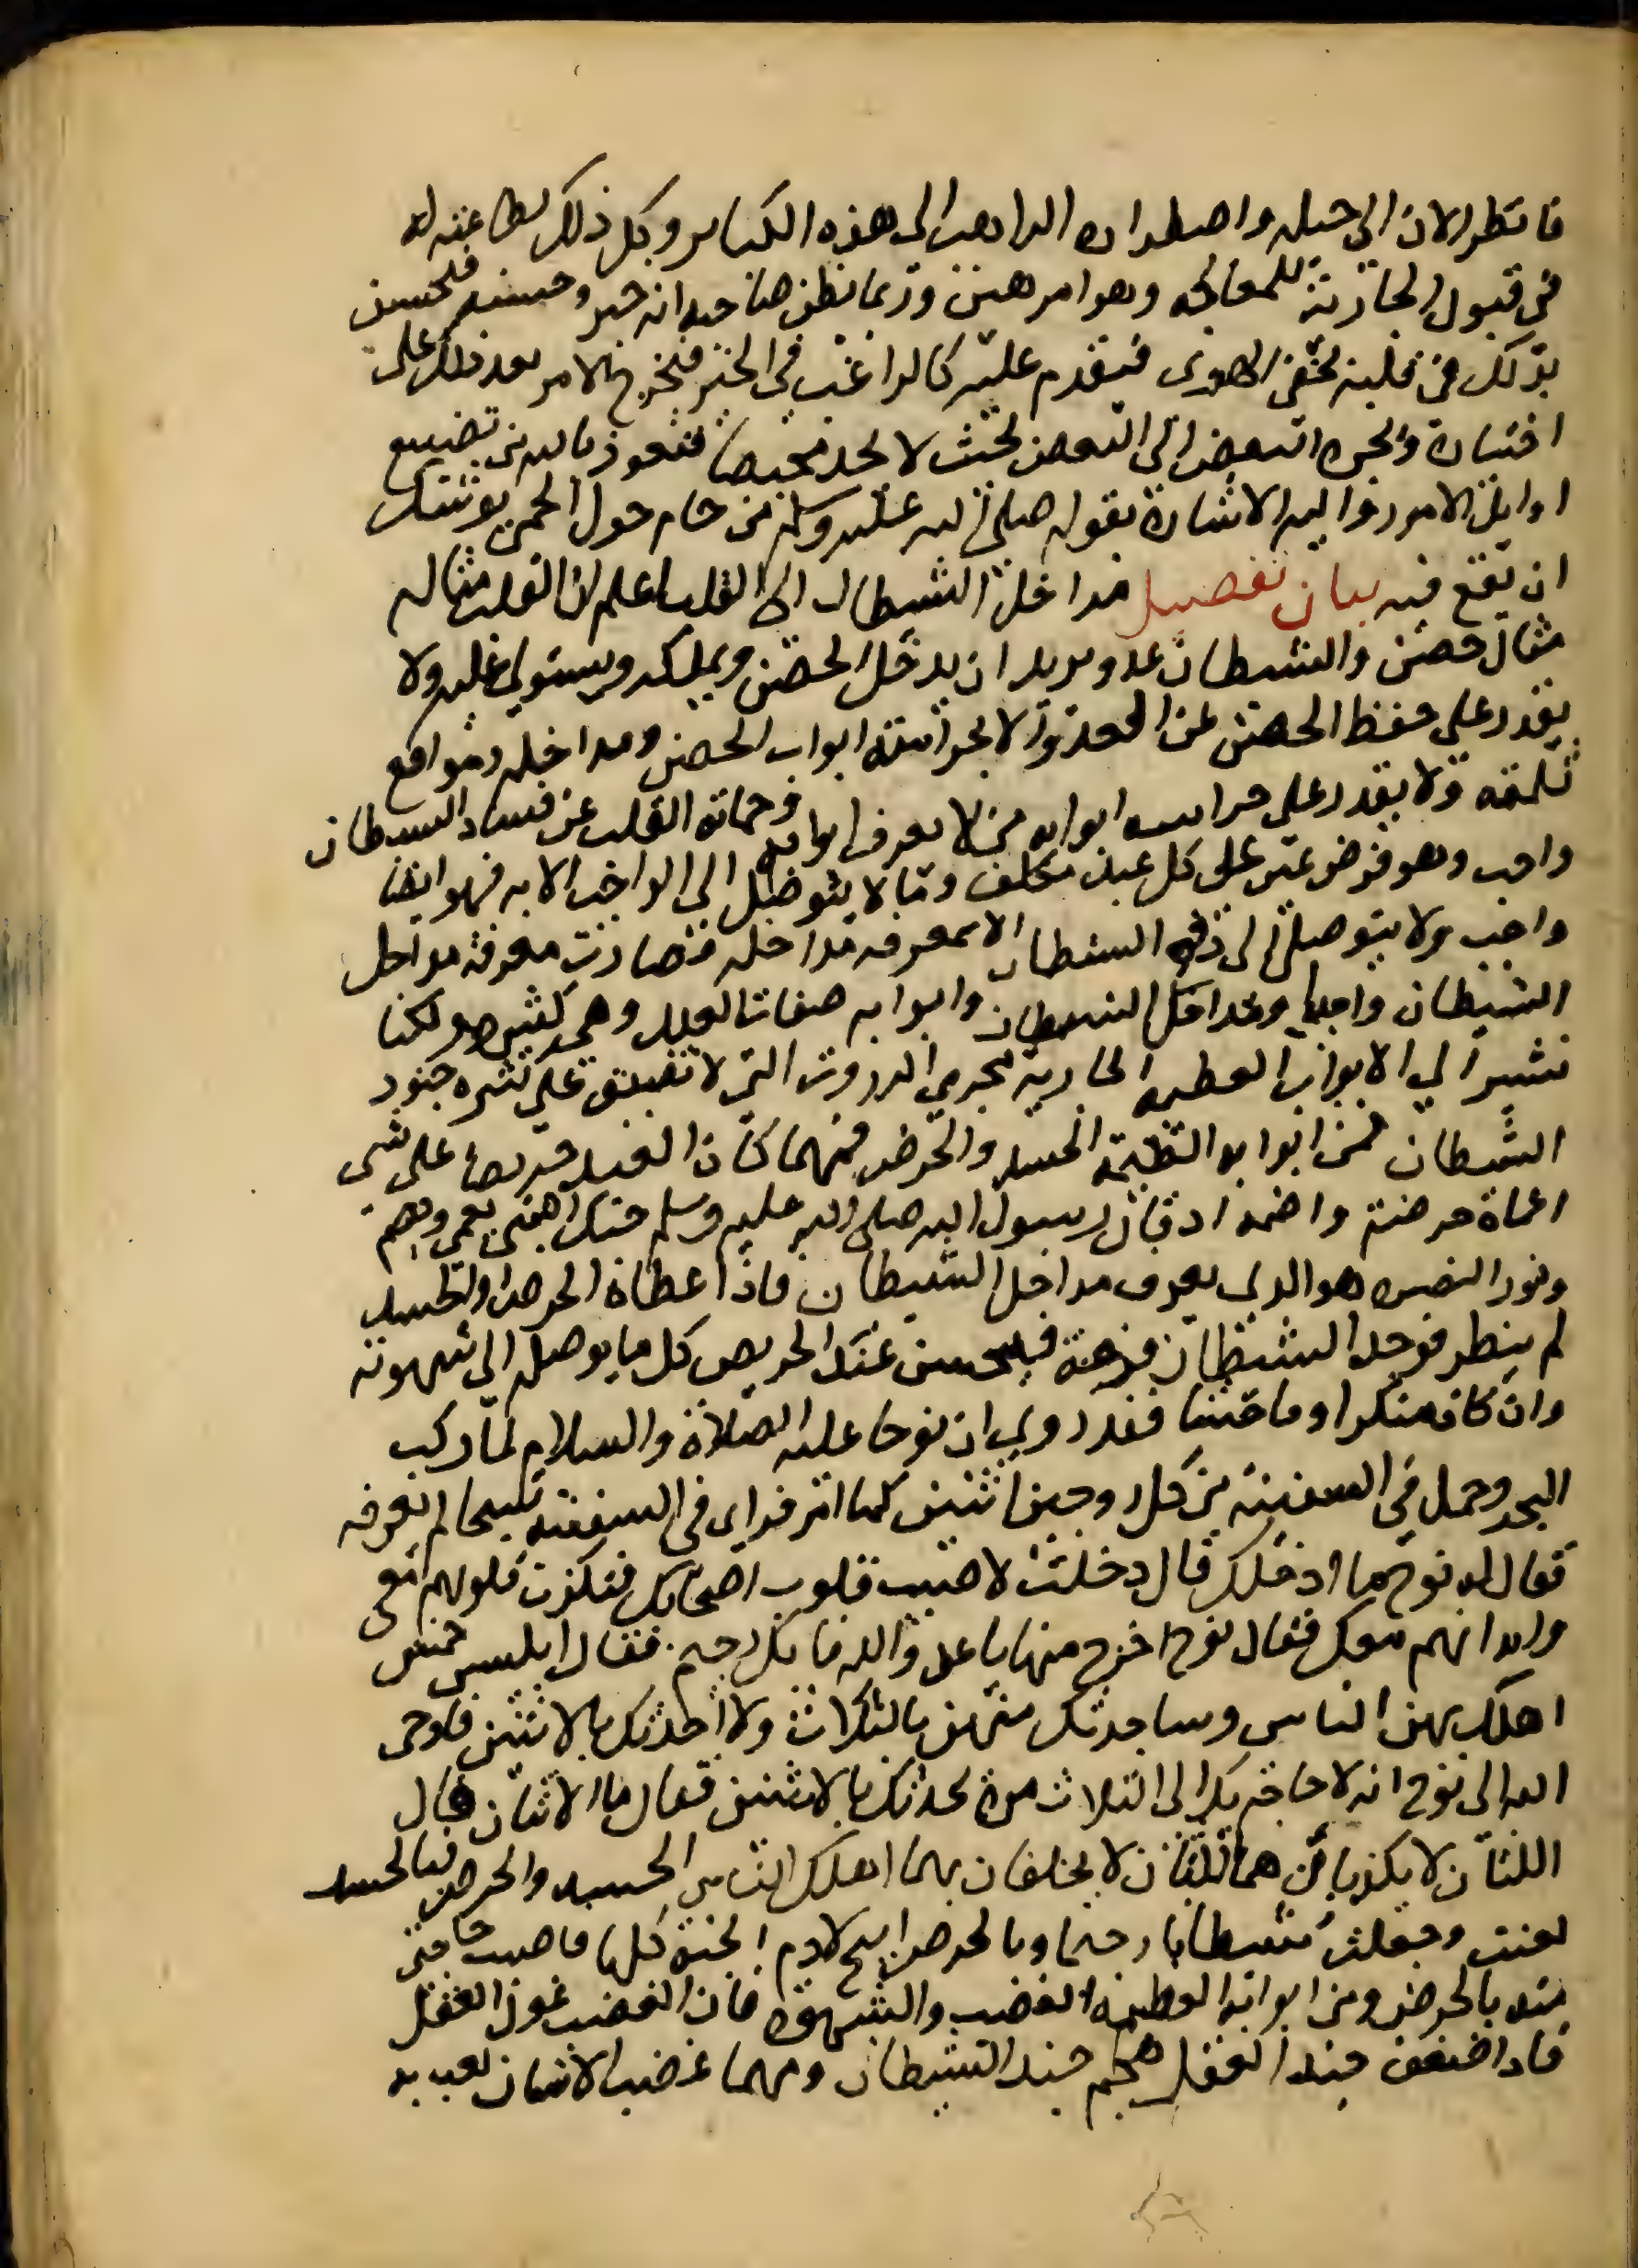 فانظر الان الى حيله واضطراره الراهب الى هذه الكبائر وكل ذلك لطاعته له
في قبول الجارية للمعالجه وهو امر هين وربما يظن صاحبه انه خير وحسنه فيحسن
بذلك في قلبه بخفى الهوى فيقدم عليه كالراغب في الخير فيخرج الامر بعد ذلك على
اختياره ويجره البعض الى البعض بحيث لا يجد محيصا فنعوذ بالله من تضييع
اوايل الامور واليه الاشارة بقوله صلى الله عليه وسلم من حام حول الحمى يوشك
ان يقع فيه بيان تفصيل مداخل الشيطان الى القلب اعلم ان القلب مثاله
مثال حصن والشيطان عدو يريد ان يدخل الحصن ويملكه ويستولي عليه ولا
يقدر على حفظ الحصن عن العدو الا بحراسة ابواب الحصن ومداخله ومواقع
ثلمه ولا يقدر على حراسه ابوابه من لا يعرف ابوابه وحماية القلب عن فساد الشيطان
واجب وهو فرض عين على كل عبد مكلف وما لا يتوصل الى الواجب الا به فهو ايضا
واجب ولا يتوصل الى دفع الشيطان الا بمعرفه مداخله فصارت معرفة مداخل
الشيطان واجبا ومداخل الشيطان وابوابه صفات العبد وهي كثيره ولكنا
نشير الى الابواب العظيمه الجارية مجري الدروب التي لا تضيق على كثره جنود
الشيطان فمن ابوابه العظيمة الحسد والحرض فمهما كان العبد حريصا على شي
اعماه حرصه واصمه اذ قال رسول الله صلى الله عليه وسلم حبك الشي يعمي ويصم
ونور البصيره هو الذي يعرف مداخل الشيطان فاذا غطاه الحرص والحسد
لم ينظر فوجد الشيطان فرصة فيحسن عند الحريص كل ما يوصله الى شهوته
وان كان منكرا وفاحشا فقد روي ان نوحا عليه الصلاة والسلام لما ركب
البحر وحمل في السفينة من كل زوجين اثنين كما امر فراى في السفينه شيخا لم يعرفه
فقال له نوح ما ادخلك قال دخلت لاصيب قلوب اصحابك فتكون قلوبهم معي
وابدانهم معك فقال نوح اخرج منها يا عدو الله فانك رجيم فقال ابليس خمس
اهلك بهن الناس وساحدثك منهن بالثلاث ولا احدثك بالاثنتين فاوحى
الله الى نوح انه لا حاجة بك الى الثلاث مره يحدثك بالاثنتين فقال ما الاثنان فقال
اللتان لا يكذبا ني هما اللتان لا يخلفان بهما اهلك الناس الحسد والحرص فبالحسد
لعنت وجعلت شيطانا رجيما وبالحرص ابيح لادم الجنة كلها فاصبت حاجتي
منه بالحرض ومن ابوابه العظيمة الغضب والشهوة فان الغضب غول العقل
فاذا ضعف جند العقل هجم جند الشيطان ومهما غضب الانسان لعب به